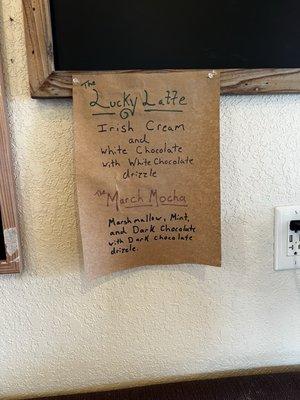 The
Lucky Latte
Irish Cream
and
White Chocolate
with White Chocolate
drizzle
The
March Mocha
Marshmallow, Mint,
and Dark Chocolate
with Dark chocolate
drizzle.